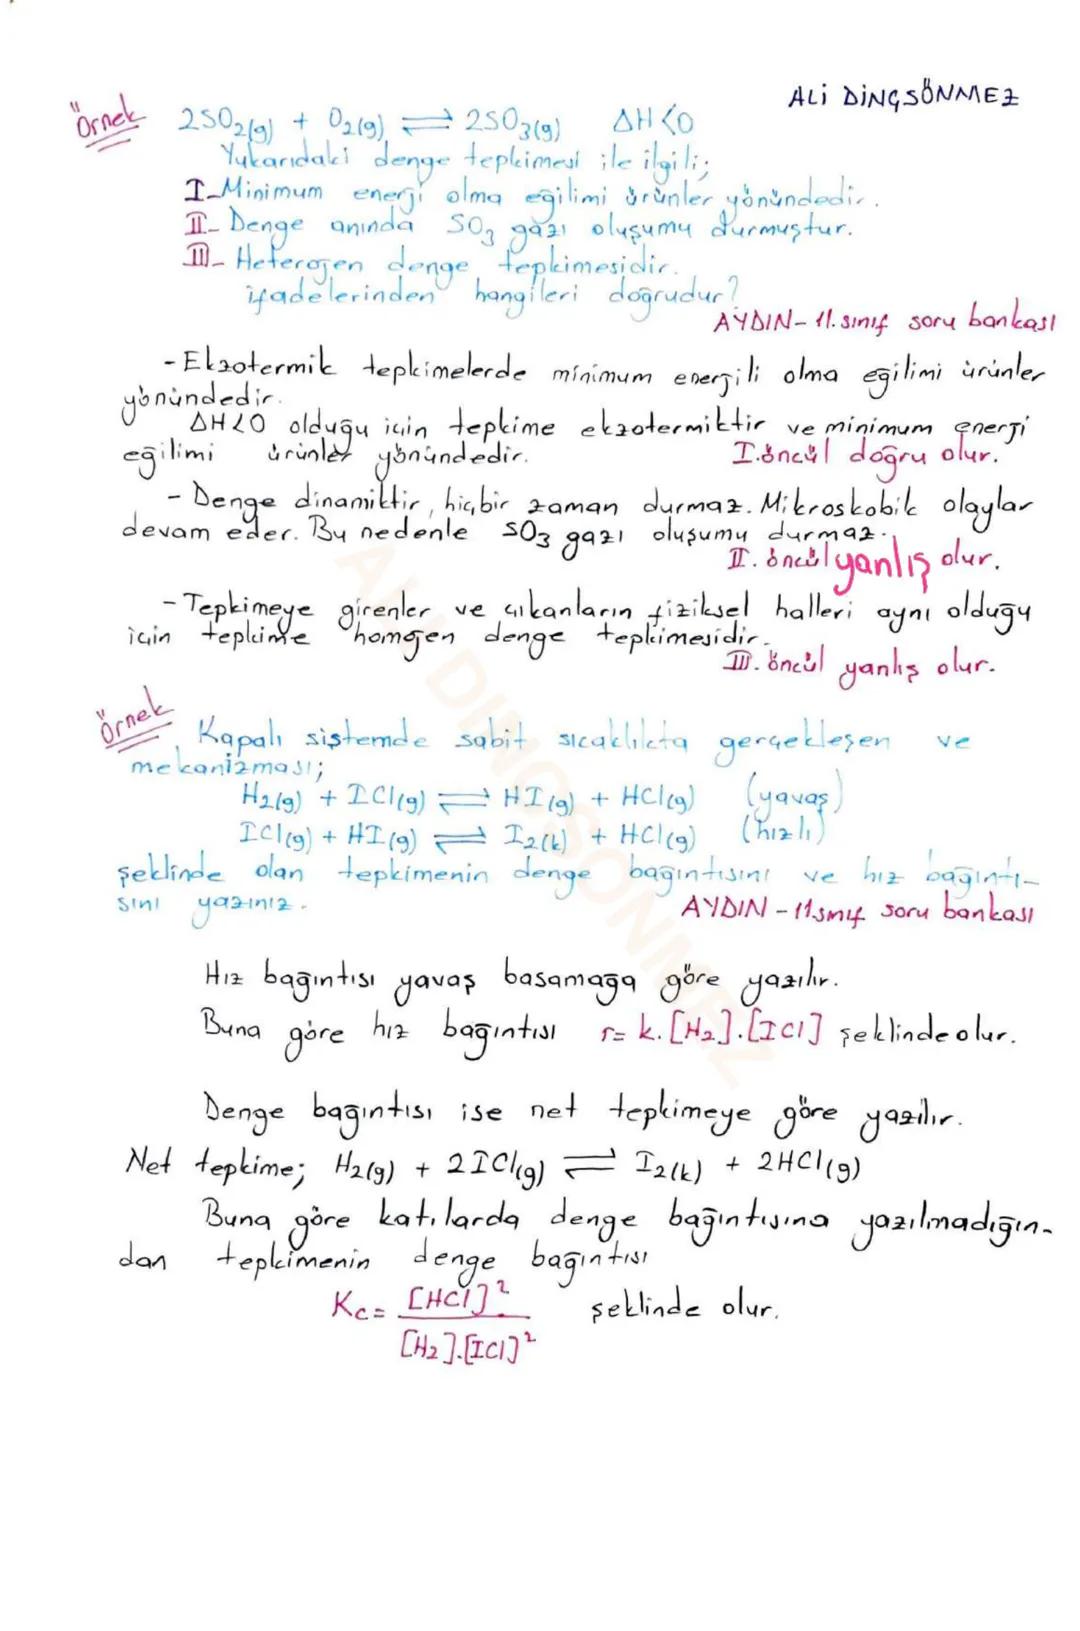 ALİ DİNÇSÖNMEZ
Örnek 2SO2(g) + O2(g) ⇌ 2SO3(g) ΔH<0
Yukarıdaki denge tepkimesi ile ilgili;
I_Minimum enerji olma eğilimi ürünler yönündedir.
II_ Denge anında SO3 gazı oluşumu durmuştur.
III_ Heterojen denge tepkimesidir.
ifadelerinden hangileri doğrudur?
AYDIN- 11.sınıf soru bankası
-Ekzotermik tepkimelerde minimum enerjili olma eğilimi ürünler
yönündedir.
ΔH<0 olduğu için tepkime ekzotermiktir ve minimum enerji
eğilimi ürünler yönündedir. I.öncül doğru olur.
- Denge dinamiktir, hiçbir zaman durmaz. Mikroskobik olaylar
devam eder. Bu nedenle SO3 gazı oluşumu durmaz.
II. öncül yanlış olur.
-Tepkimeye girenler ve çıkanların fiziksel halleri aynı olduğu
için tepkime homojen denge tepkimesidir.
III. öncül yanlış olur.
Örnek Kapalı sistemde sabit sıcaklıkta gerçekleşen ve
mekanizması;
H2(g) + ICl(g) ⇌ HI(g) + HCl(g) (yavaş)
ICl(g) + HI(g) ⇌ I2(k) + HCl(g) (hızlı)
şeklinde olan tepkimenin denge bağıntısını ve hız bağıntı-
sını yazınız.
AYDIN - 11.sınıf soru bankası
Hız bağıntısı yavaş basamağa göre yazılır.
Buna göre hız bağıntısı r= k.[H2].[ICl] şeklinde olur.
Denge bağıntısı ise net tepkimeye göre yazılır.
Net tepkime; H2(g) + 2ICl(g) ⇌ I2(k) + 2HCl(g)
Buna göre katılarda denge bağıntısına yazılmadığın-
dan tepkimenin denge bağıntısı
Kc= [HCl]² / [H2].[ICl]² şeklinde olur.
ALİ DİNÇSÖNMEZ